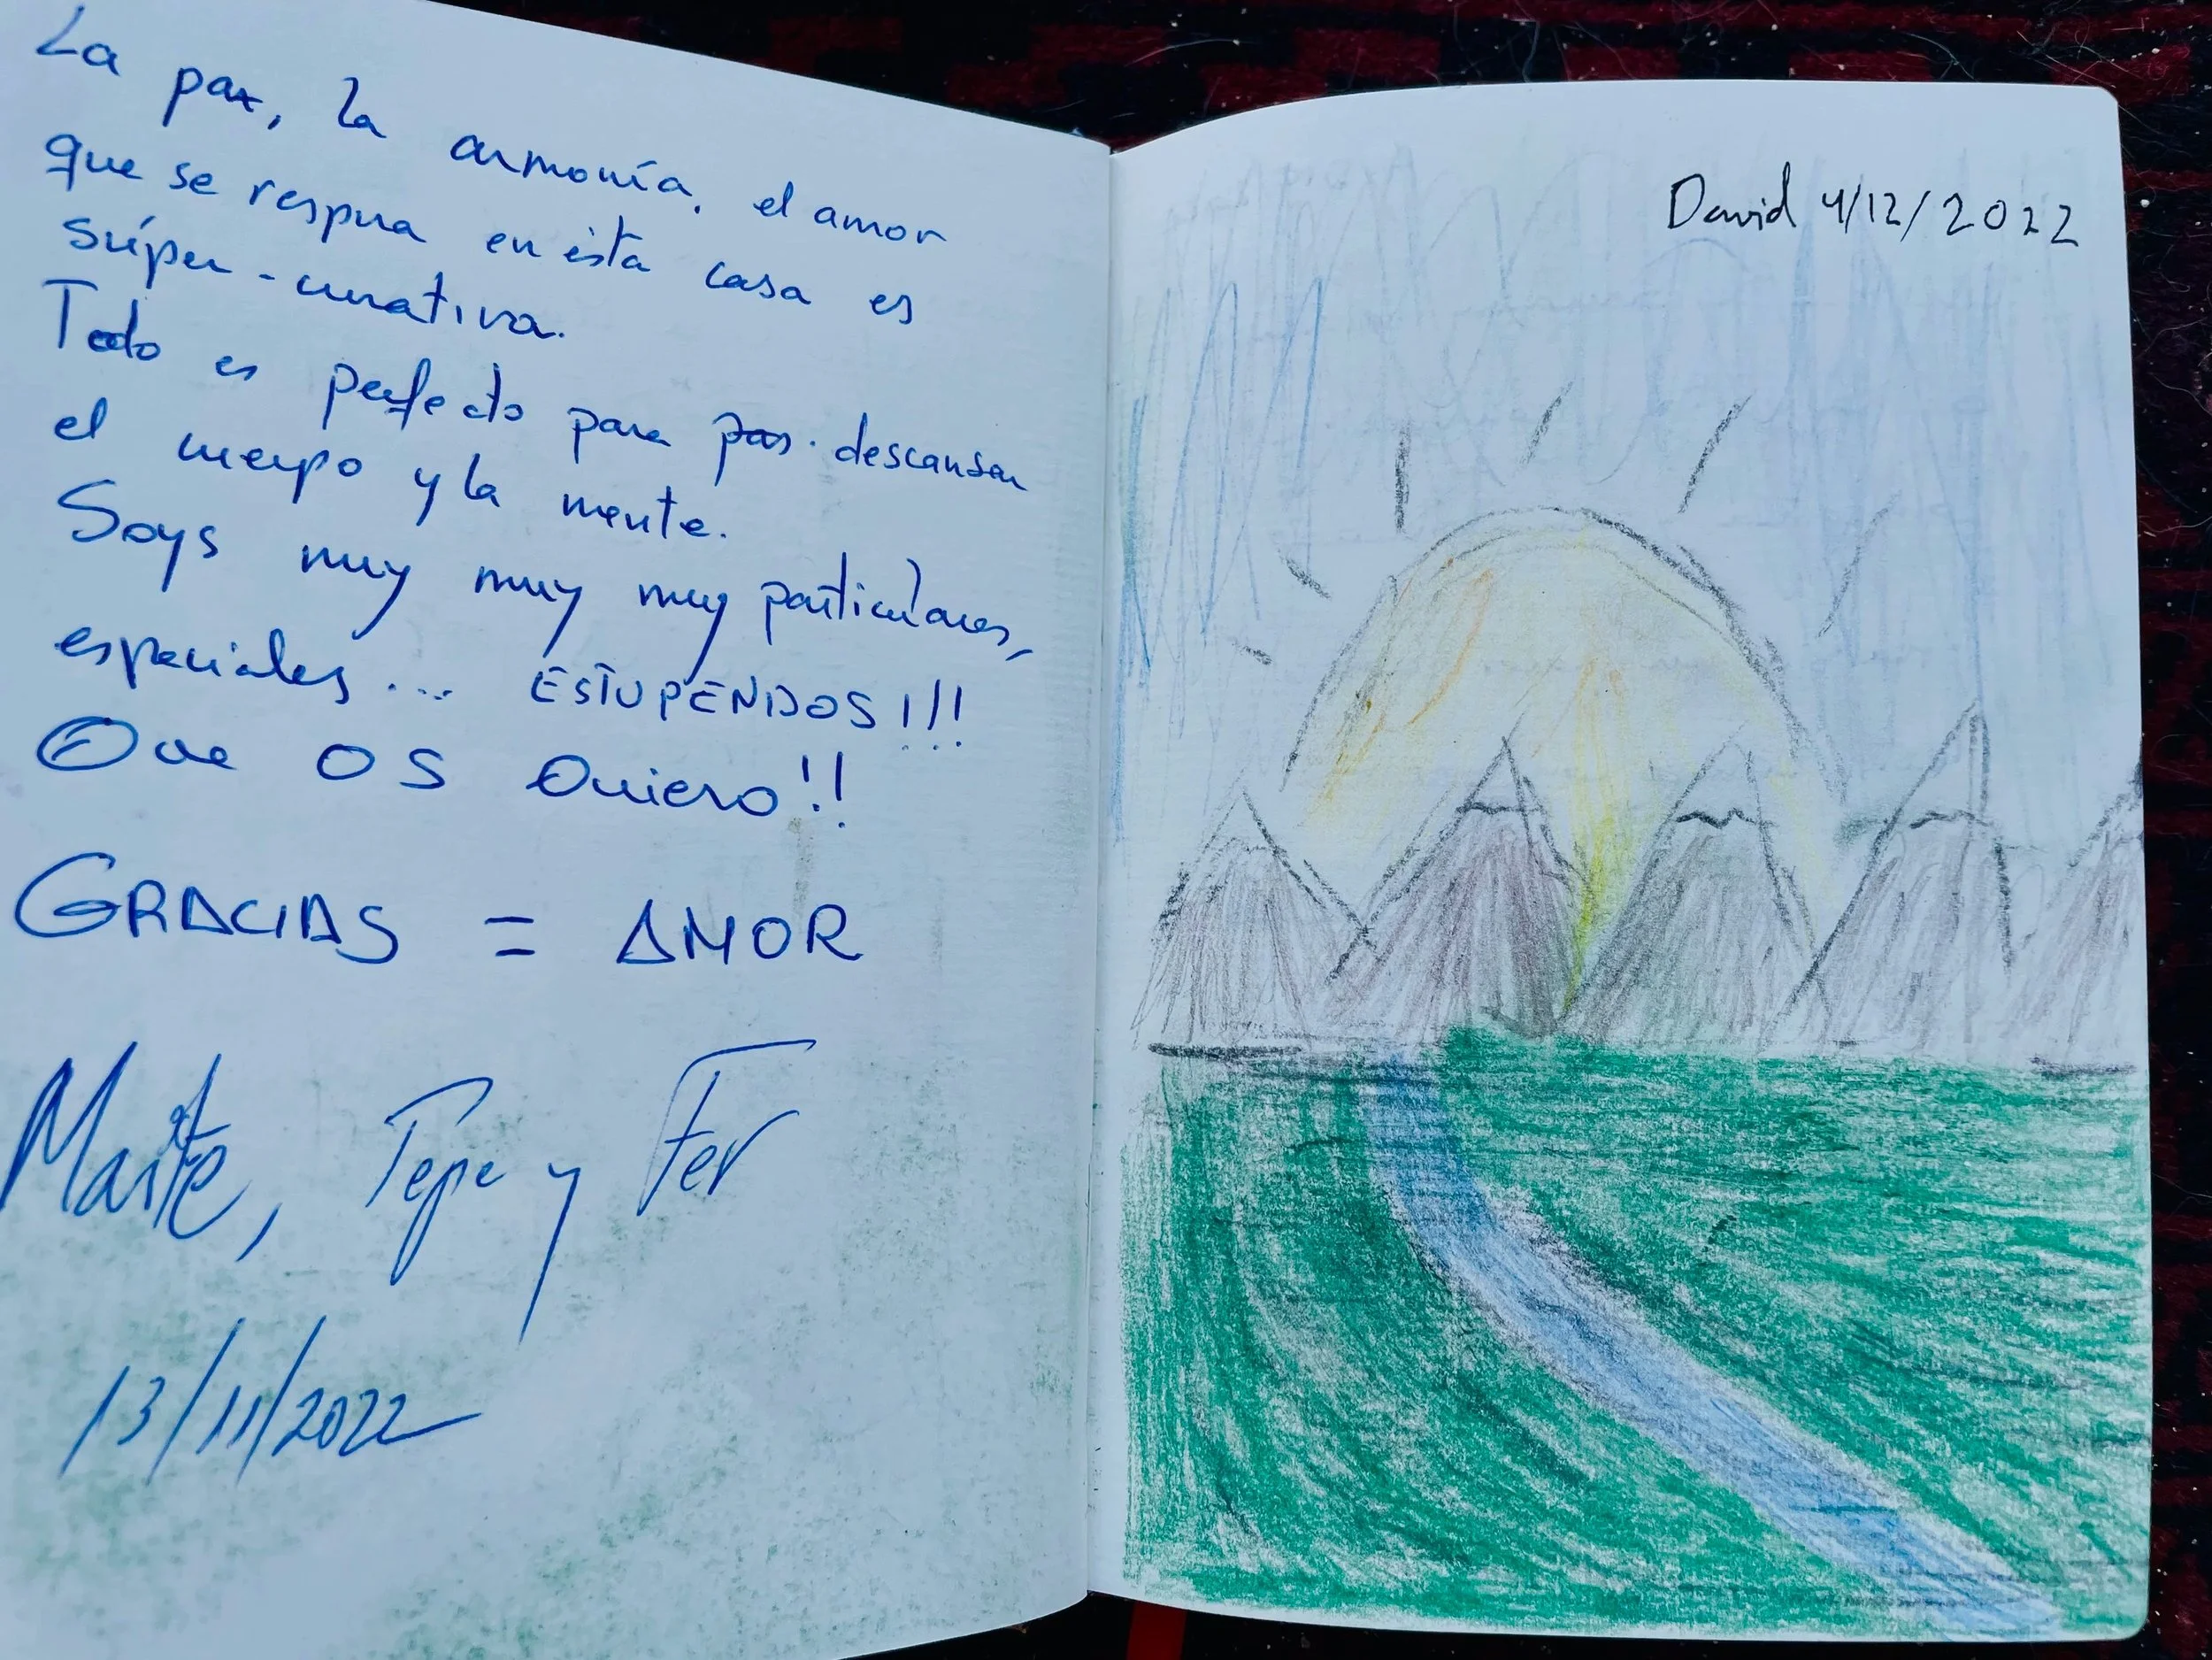 La paz, la armonía, el amor
que se respira en ésta casa es
súper-curativa.
Todo es perfecto para descansar
el cuerpo y la mente.
Soys muy muy muy particulares,
especiales... ESTUPENDOS!!!
Que OS Quiero!!
GRACIAS = AMOR
Maite, Pepe y Fer
13/11/2022
David 4/12/2022